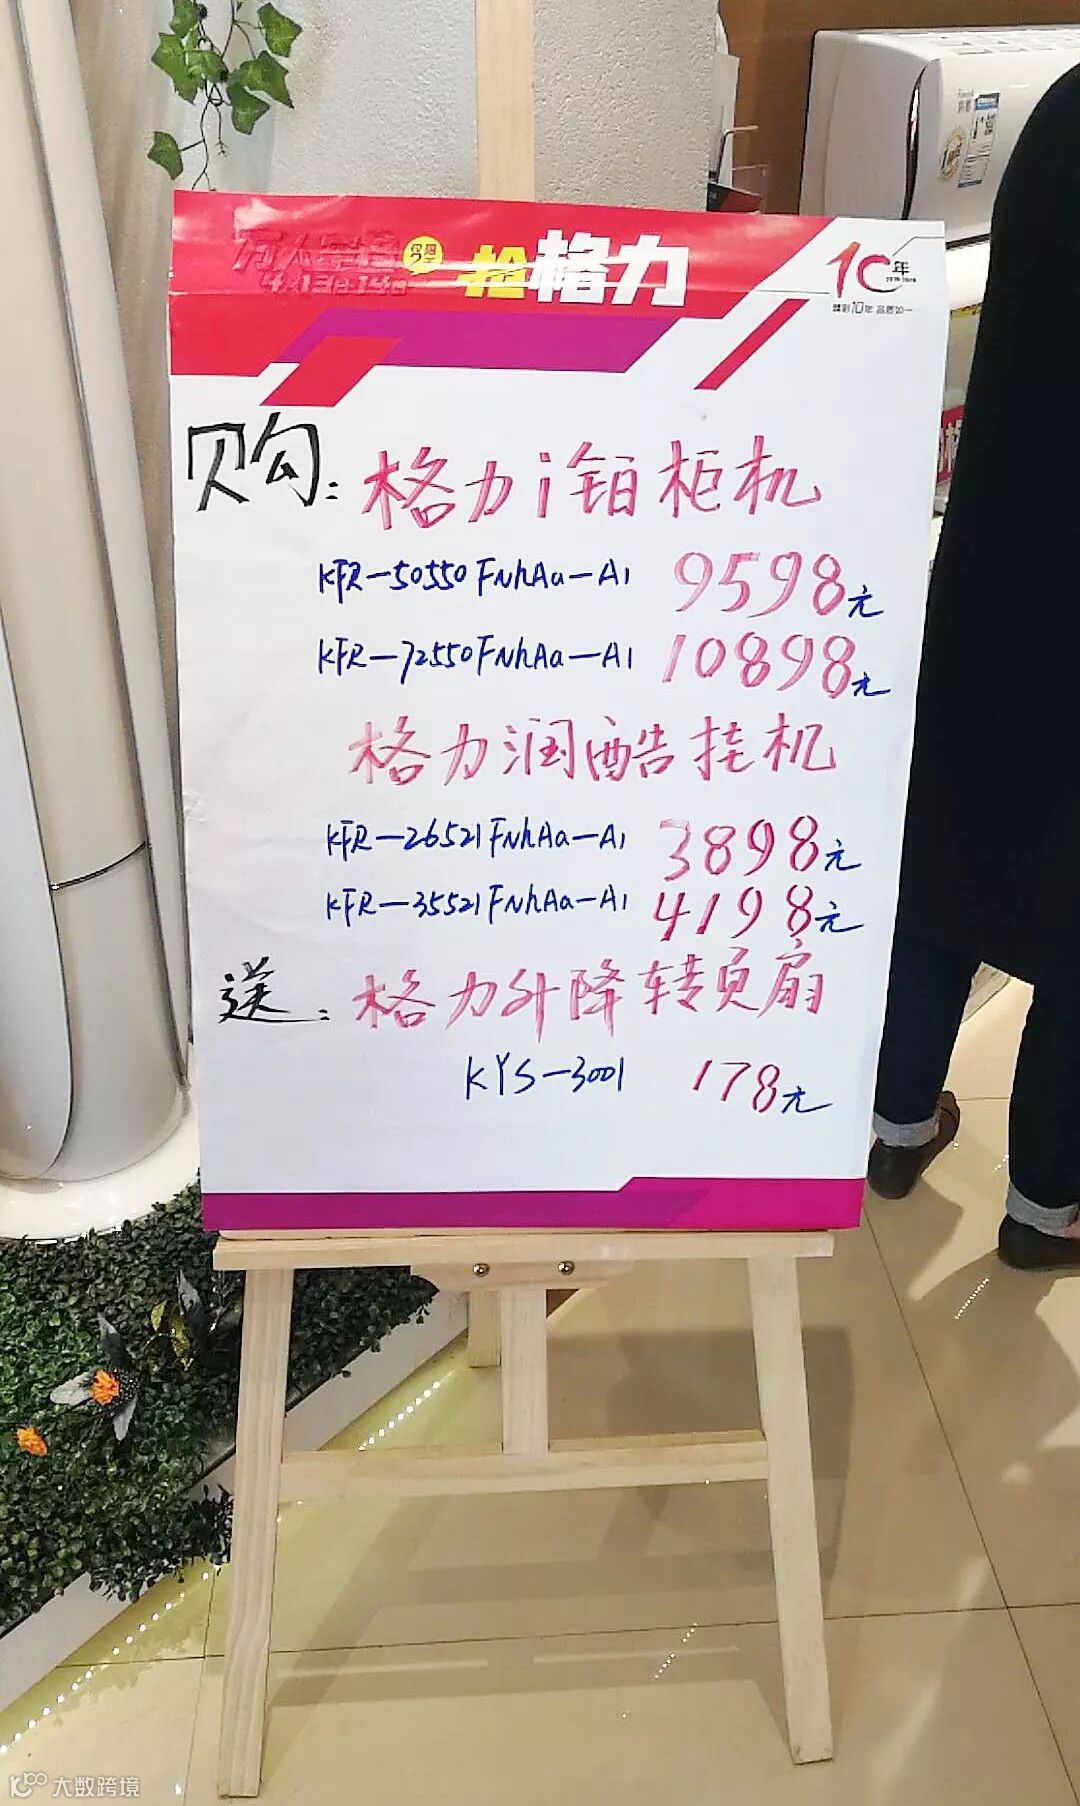 仅限2天
抢格力
10年
精彩10年 品质如一
购: 格力i铂柜机
KFR-50550FNhAa-A1 9598元
KFR-72550FNhAa-A1 10898元
格力润酷挂机
KFR-26521FNhAa-A1 3898元
KFR-35521FNhAa-A1 4198元
送: 格力升降转页扇
KYS-3001 178元
大数跨境